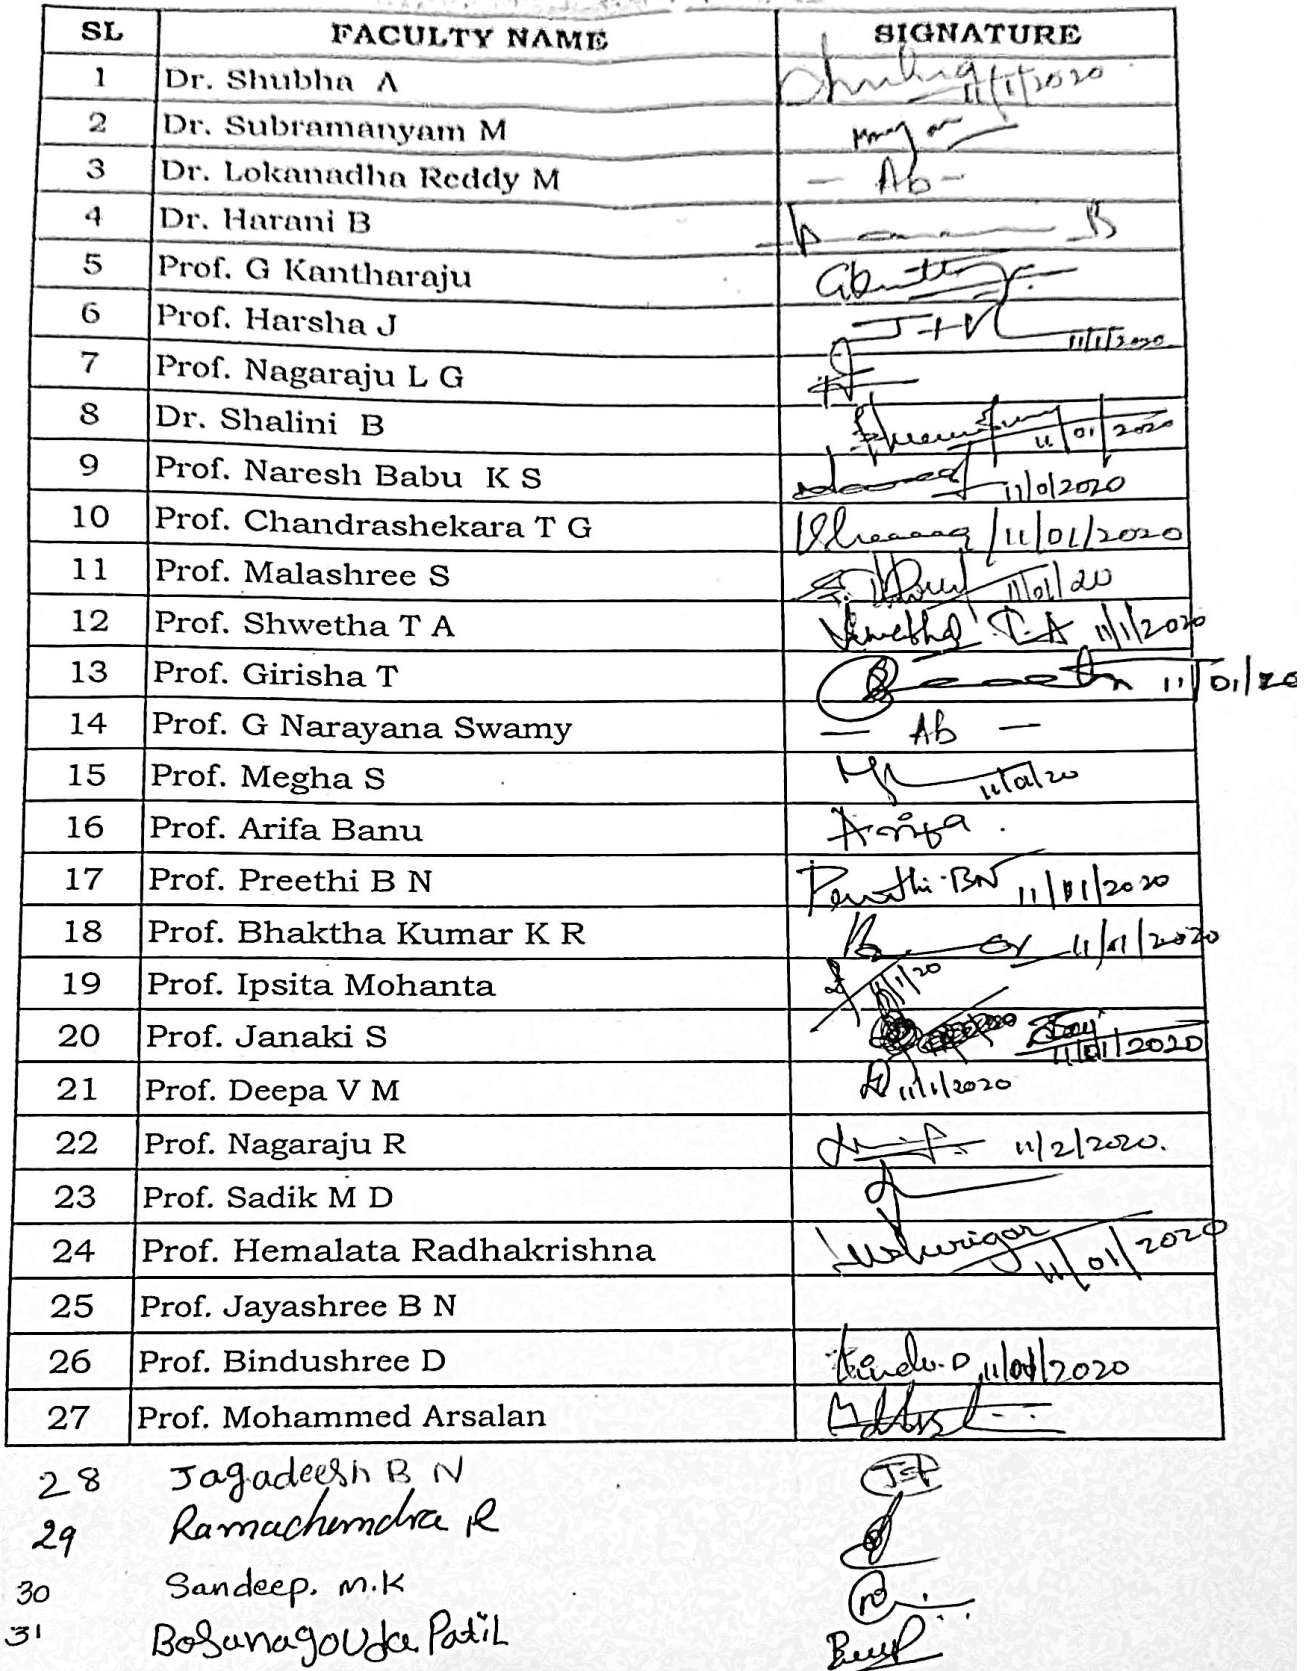 SL FACULTY NAME SIGNATURE
1 Dr. Shubha A 11/1/2020
2 Dr. Subramanyam M
3 Dr. Lokanadha Reddy M - Ab -
4 Dr. Harani B
5 Prof. G Kantharaju
6 Prof. Harsha J 11/1/2020
7 Prof. Nagaraju L G
8 Dr. Shalini B 11/01/2020
9 Prof. Naresh Babu K S 11/0/2020
10 Prof. Chandrashekara T G 11/01/2020
11 Prof. Malashree S 11/01/20
12 Prof. Shwetha T A Shwetha T.A 11/1/2020
13 Prof. Girisha T 11/01/20
14 Prof. G Narayana Swamy - Ab -
15 Prof. Megha S 11/01/20
16 Prof. Arifa Banu Arifa.
17 Prof. Preethi B N Preethi.BN 11/01/2020
18 Prof. Bhaktha Kumar K R 11/01/2020
19 Prof. Ipsita Mohanta 11/1/20
20 Prof. Janaki S 11/01/2020
21 Prof. Deepa V M 11/1/2020
22 Prof. Nagaraju R 11/2/2020.
23 Prof. Sadik M D
24 Prof. Hemalata Radhakrishna 11/01/2020
25 Prof. Jayashree B N
26 Prof. Bindushree D Bindu.D 11/01/2020
27 Prof. Mohammed Arsalan
28 Jagadeesh B N
29 Ramachandra R
30 Sandeep. M.K
31 Basanagouda Patil